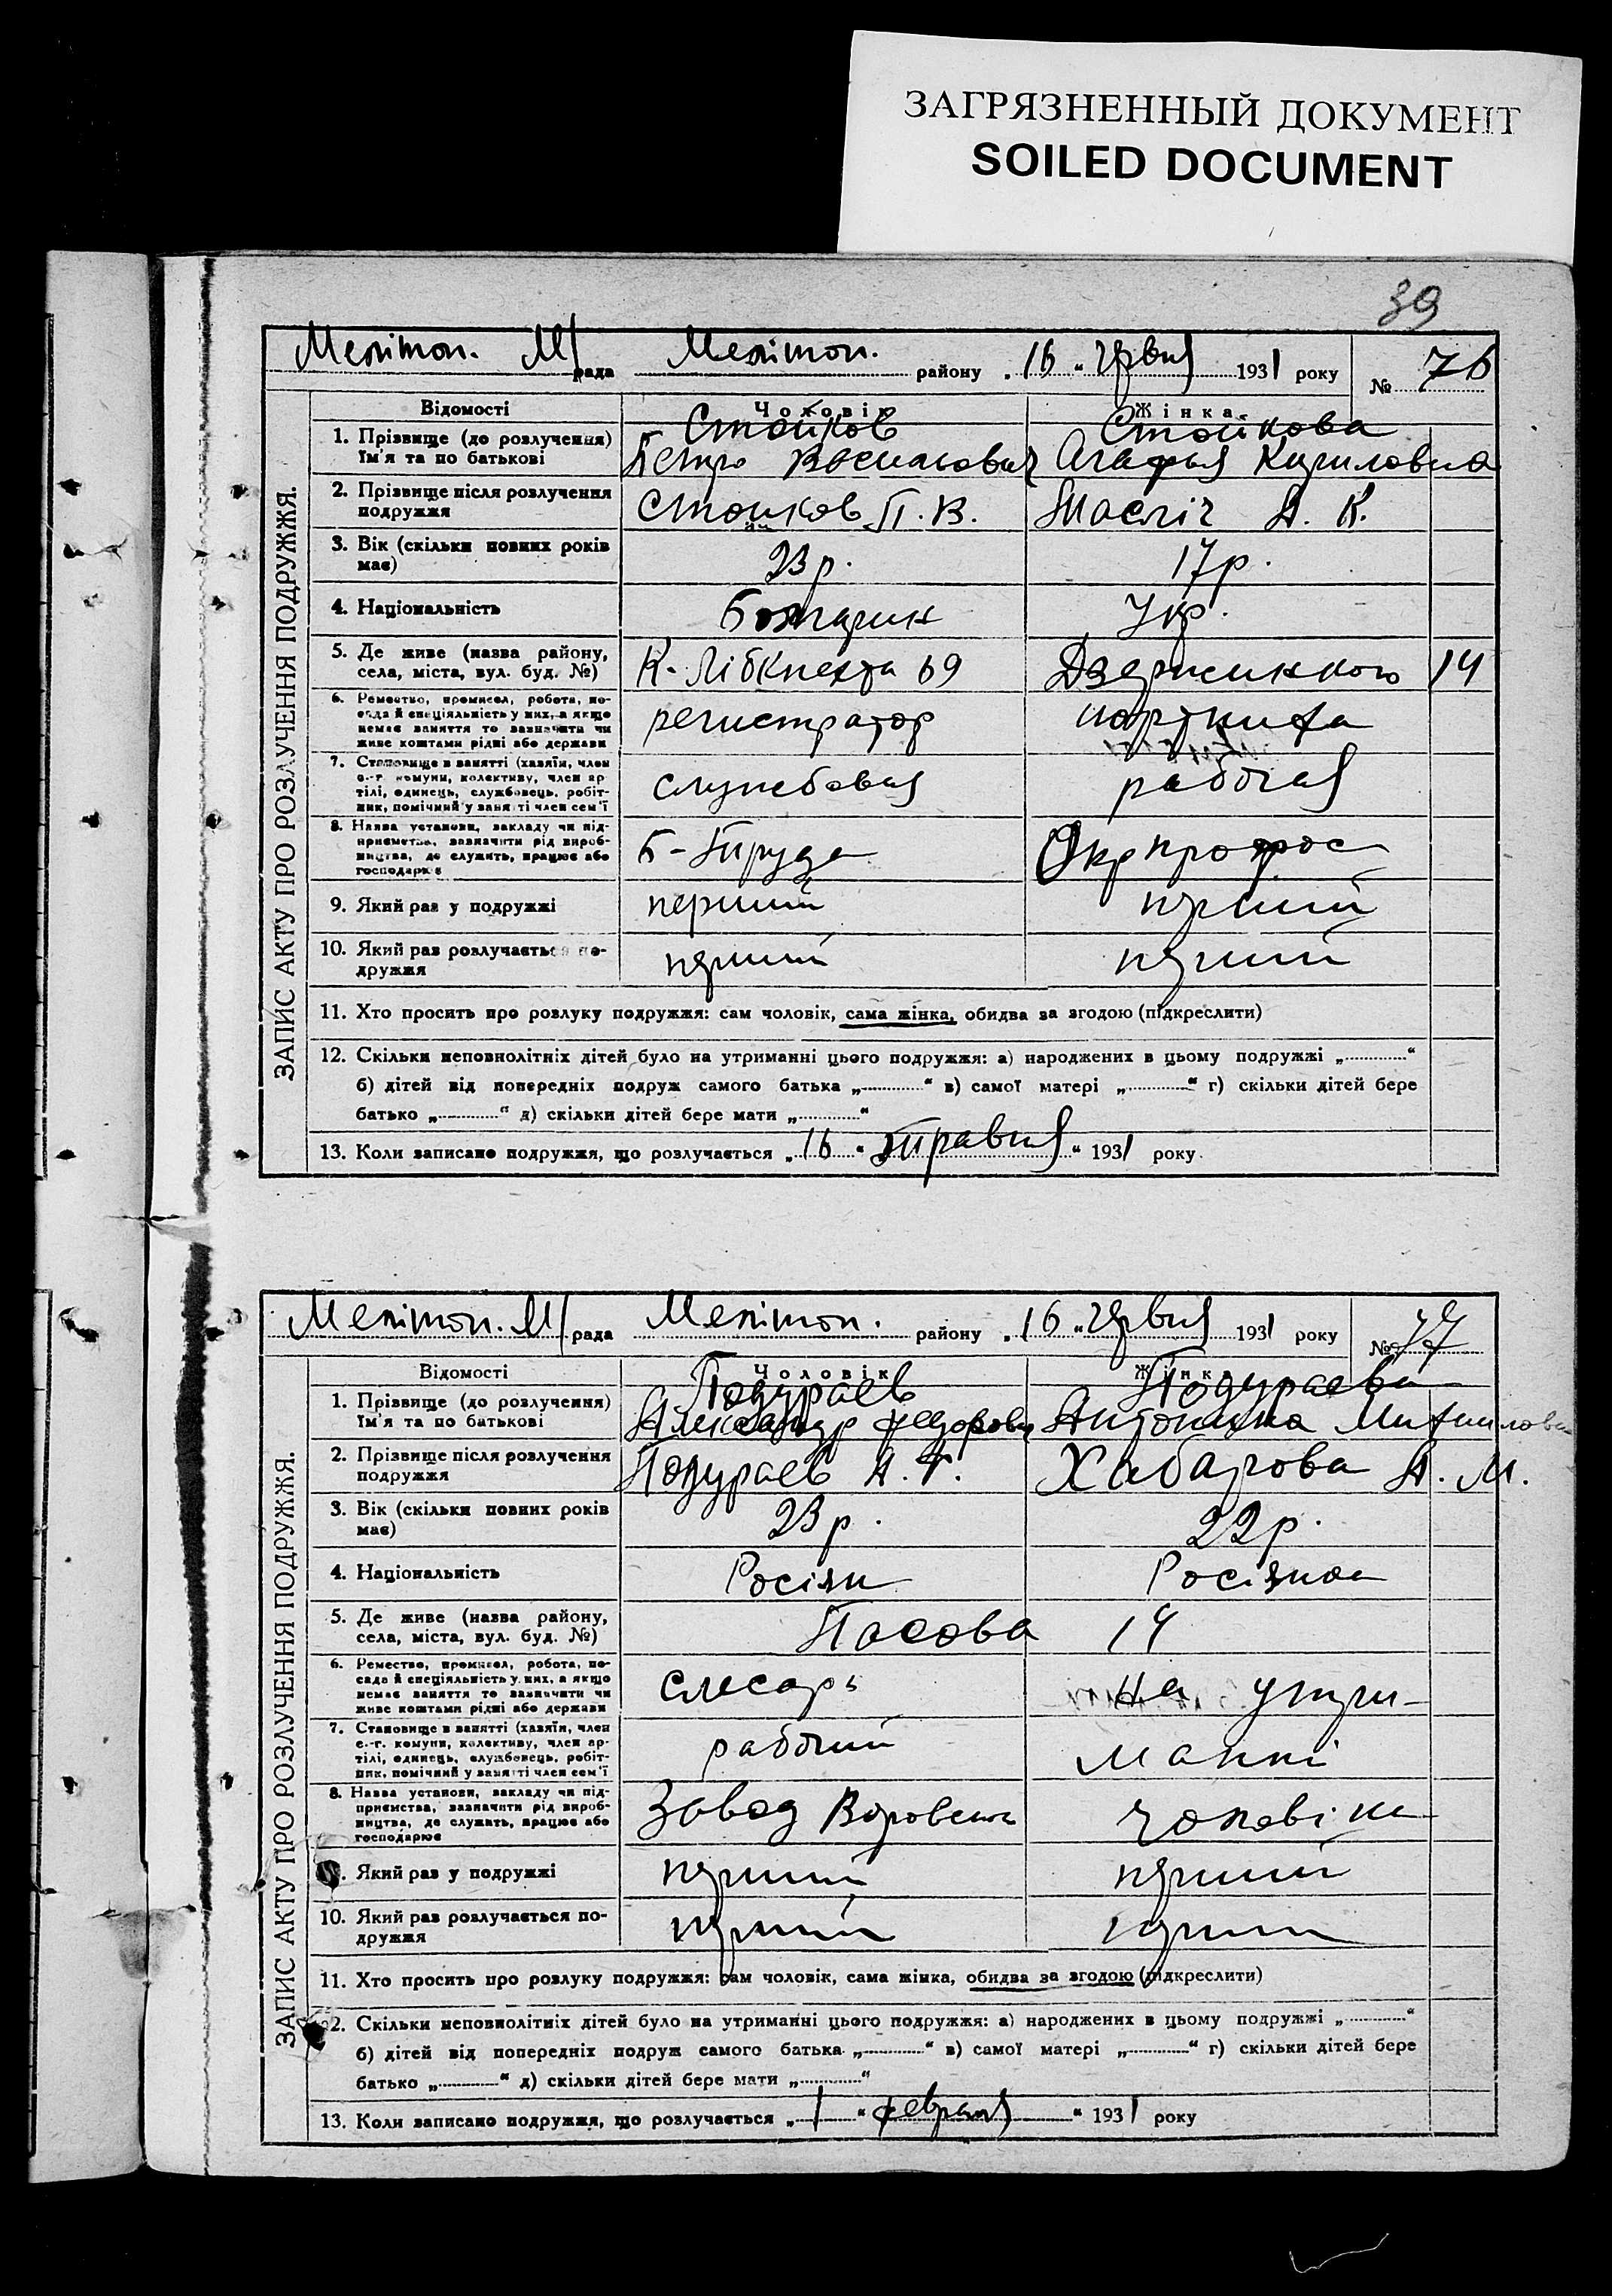 ЗАГРЯЗНЕННЫЙ ДОКУМЕНТ
SOILED DOCUMENT
39
Мелітоп. М/рада Мелітоп. району „16“ червня 1931 року № 76
ЗАПИС АКТУ ПРО РОЗЛУЧЕННЯ ПОДРУЖЖЯ.
Відомості Чоловік Жінка
Стойков Стойкова
1. Прізвище (до розлучення) Ім'я та по батькові Петро Агафья Кириловна
2. Прізвище після розлучення подружжя Стойков П. В. А. К.
3. Вік (скільки повних років має) 23 р. 17 р.
4. Національність Болгарин Укр.
5. Де живе (назва району, села, міста, вул. буд. №) К. Лібкнехта 69 Дзержинкого 14
6. Ремество, промисел, робота, посада й спеціяльність у них, а якщо немає заняття то зазначити чи живе коштами рідні або держави регистратор
7. Становище в занятті (хазяїн, член с.-г. комуни, колективу, член артілі, одинець, службовець, робітник, помічний у занятті член сем'ї рабочая
8. Назва установи, закладу чи підприємства, зазначити рід виробництва, де служить, працює або господарює Б-Труда
9. Який раз у подружжі перший перший
10. Який раз розлучається подружжя перший перший
11. Хто просить про розлуку подружжя: сам чоловік, сама жінка, обидва за згодою (підкреслити)
12. Скільки неповнолітніх дітей було на утриманні цього подружжя: а) народжених в цьому подружжі „............“
б) дітей від попередніх подруж самого батька „............“ в) самої матері „............“ г) скільки дітей бере
батько „............“ д) скільки дітей бере мати „............“
13. Коли записано подружжя, що розлучається „16“ травня “ 1931 року.
Мелітоп. М/рада Мелітоп. району „16“ червня 1931 року № 77
ЗАПИС АКТУ ПРО РОЗЛУЧЕННЯ ПОДРУЖЖЯ.
Відомості Чоловік Жінка
Подураев Подураева
1. Прізвище (до розлучення) Ім'я та по батькові Александр Федорович Антонина Михаиловна
2. Прізвище після розлучення подружжя Подураев А. Ф. Хабарова А. М.
3. Вік (скільки повних років має) 23 р. 22 р.
4. Національність Росіян Росіянка
5. Де живе (назва району, села, міста, вул. буд. №) 14
6. Ремество, промисел, робота, посада й спеціяльність у них, а якщо немає заняття то зазначити чи живе коштами рідні або держави слесарь на утри-
7. Становище в занятті (хазяїн, член с.-г. комуни, колективу, член артілі, одинець, службовець, робітник, помічний у занятті член сем'ї рабочий манні
8. Назва установи, закладу чи підприємства, зазначити рід виробництва, де служить, працює або господарює Завод Воровська чоловіка
. Який раз у подружжі перший перший
10. Який раз розлучається подружжя перший перший
11. Хто просить про розлуку подружжя: сам чоловік, сама жінка, обидва за згодою (підкреслити)
12. Скільки неповнолітніх дітей було на утриманні цього подружжя: а) народжених в цьому подружжі „............“
б) дітей від попередніх подруж самого батька „............“ в) самої матері „............“ г) скільки дітей бере
батько „............“ д) скільки дітей бере мати „............“
13. Коли записано подружжя, що розлучається „1“ февраля “ 1931 року